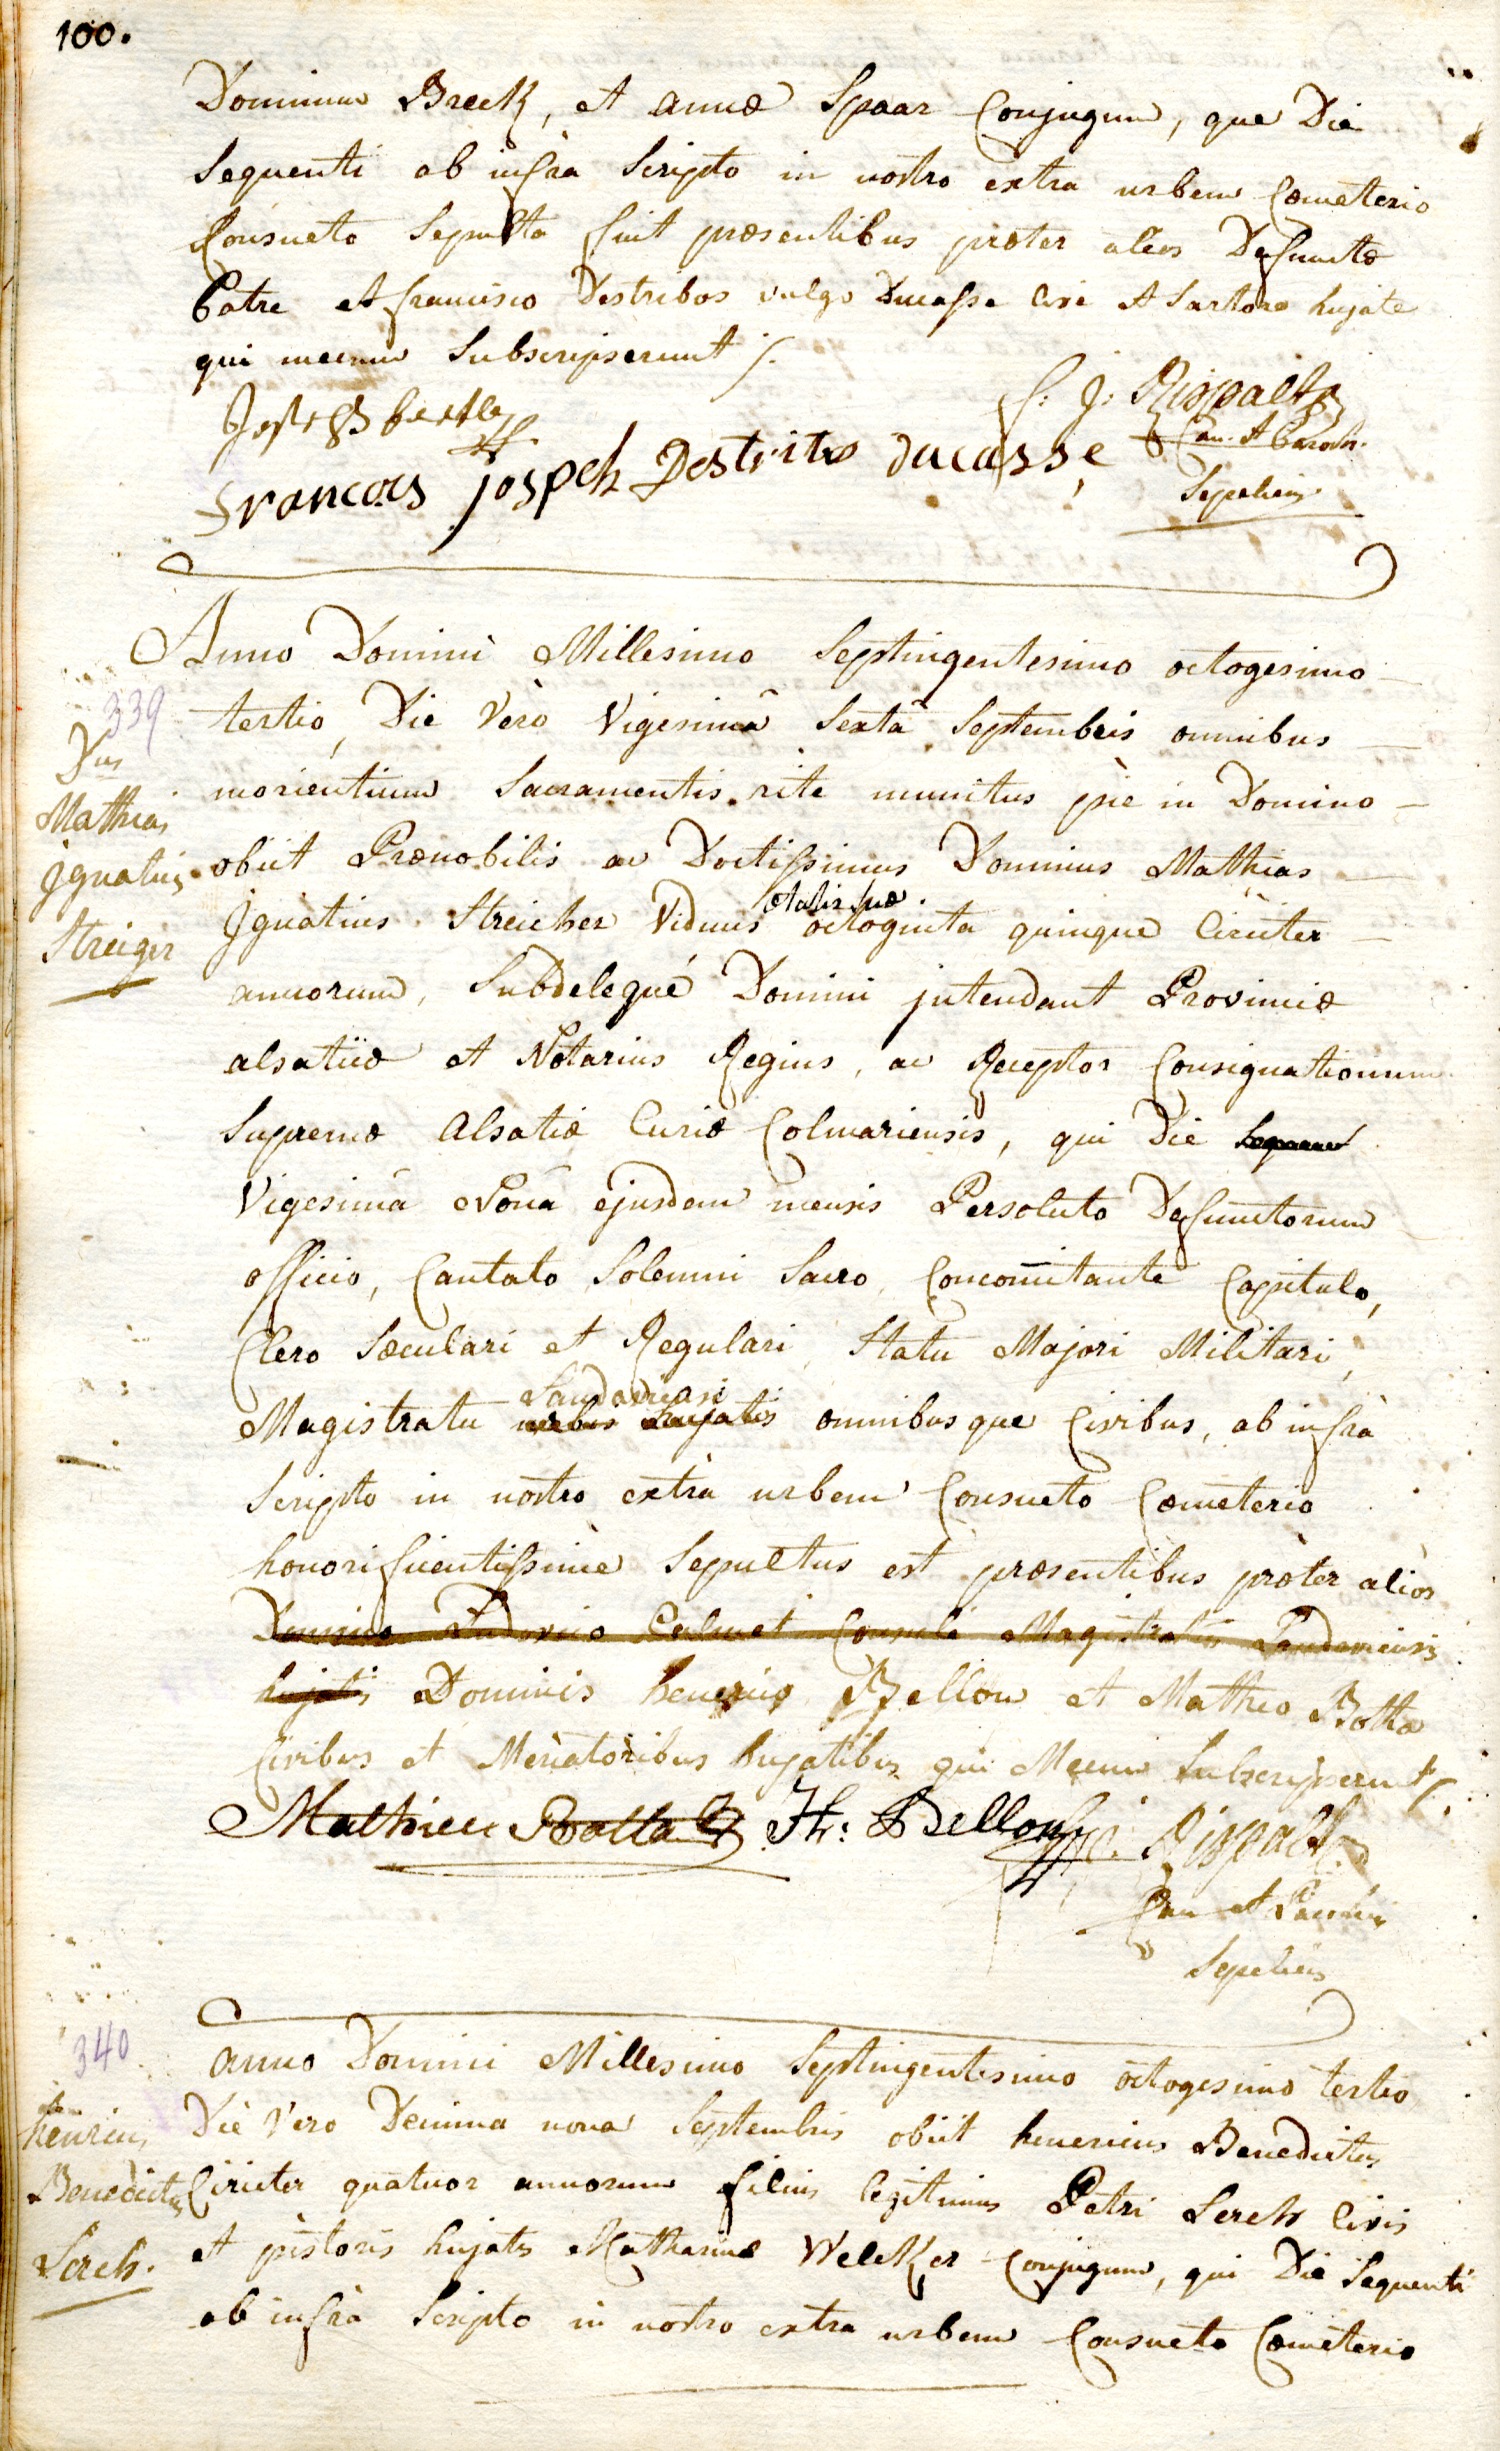 100.
Dominum Breck, et annæ Spaar Conjugum, quæ Die
Sequenti ab infrà Scripto in nostro extra urbem Cœmeterio
Consueto Sepulta fuit præsentibus præter alios Defunctæ
Patre et francisco Destribos vulgo Ducasse Cive et Sartore hujate
qui mecum Subscripserunt ./.
francois jospeh Destribs ducasse
C. J. Rispalt
Can. et Paroch.
Sepeliens
Anno Domini Millesimo Septingentesimo octogesimo
339
tertio, Die Vero Vigesimâ Sextâ Septembris omnibus
Dus
Mathias
Ignatius
Streiger
morientium Sacramentis rite munitus pie in Domino
obiit Prænobilis ac Doctissimus Dominus Mathias
Ignatius Streicher Viduus ætatis suæ octoginta quinque Circiter
annorum, Subdelegué Domini jntendant Provinciæ
alsatiiæ et Notarius Regius, ac Receptor Consignationum
Supremæ Alsatiæ Curiæ Colmariensis, qui Die
Vigesimâ Nonâ ejusdem mensis Persoluto Defunctorum
officio, Cantato Solemni Sacro, Concomitante Capitulo,
Clero Sæculari et Regulari, Statu Majori Militari,
Magistratu urbis hujatis Landaviasi omnibusque Civibus, ab infrà
Scripto in nostro extrà urbem Consueto Cœmeterio
honorificentissime Sepultus est præsentibus præter alios
Domino Ludovico Calmet Consule Magistratus Landaviensis
hujatis Dominis henerico Bellon et Matheo Botta
Civibus et Mercatoribus hujatibus qui Mecum Subscripserunt ./.
Mathieu Botta H: Bellon Rispalt
Can et Parochus
Sepeliens
340
anno Domini Millesimo Septingentesimo octogesimo tertio
henricus
Benedictus
Lerch.
Die Vero Decima nona Septembris obiit henericus Benedictus
Circiter quatuor annorum filius legitimus Petri Lerch Civis
et pistoris hujatis et Katharinæ Welcker Conjugum, qui Die Sequenti
ab infrà Scripto in nostro extra urbem Consueto Cœmeterio